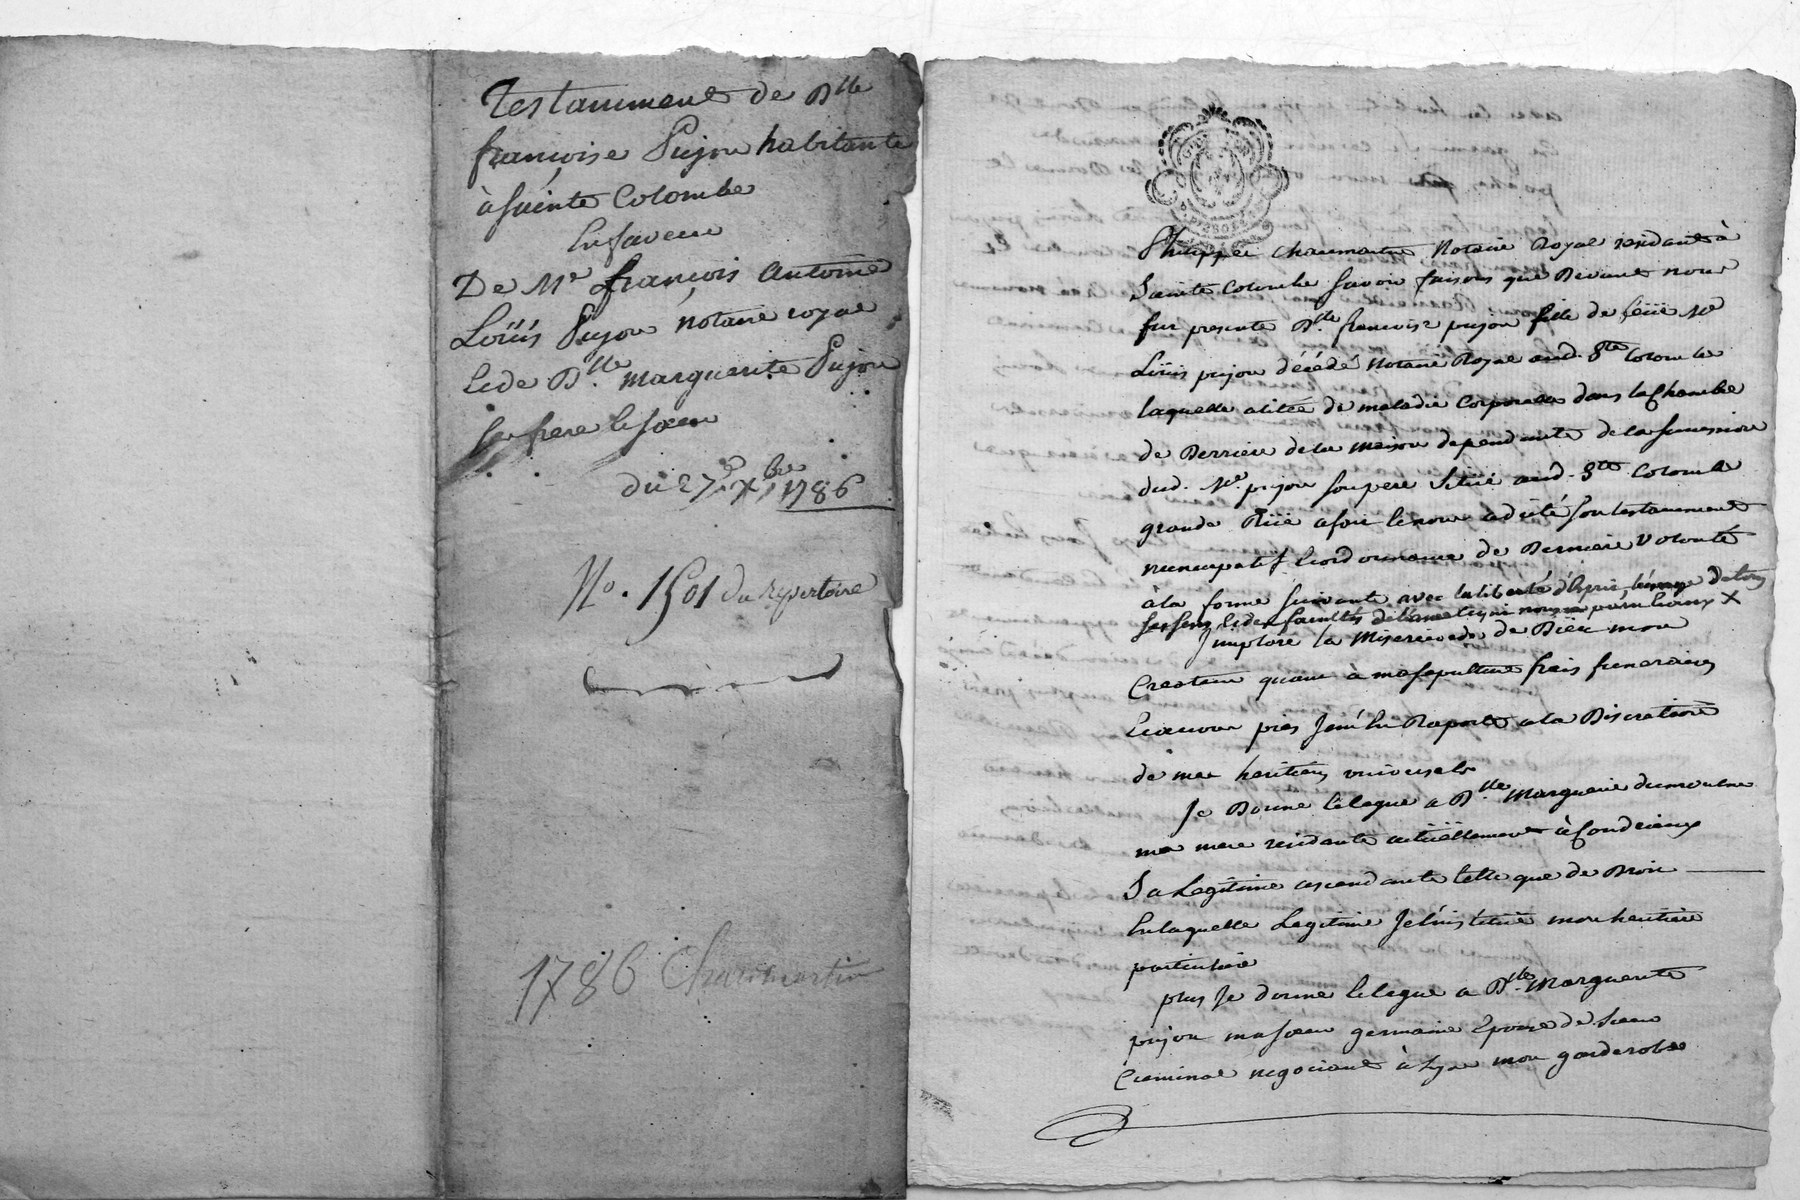 Testamment de Dlle
françoise Pujou habitante
à Sainte Colombe
En faveur
De Me françois Antoine
Loüis Pujou notaire royal
Et de Dlle marguerite Pujou
Ses frere et soeur
du 27 Xbre 1786
No. 1501 du repertoire
1786 Chaumartin
Philippe Chaumartin Notaire Royal residant à
Sainte Colombe savoir faisons que Devant nous
fut presente Dlle francoise pujou fille de feüe Me
Loüis pujou décédé Notaire Royal aud. Ste Colombe
laquelle alitée de maladie Corporelle dans la Chambre
de Derriere de la maison dependante de la succession
dud. Me pujou son pere Sitüé aud. Ste Colombe
grande Rüe a fait et nous a dicté son testamment
nuncupatif et ordonnance de Derniere volonté
à la forme suivante avec la liberté d'Esprit, l'usage de tous
ses sens et des facultés de l'ame X
J'implore la Misericorde de Dieu mon
Createur quant à ma sepulture frais funeraires
Et aumones pies J'en Raporte a la Discretion
de mes heritiers universels
Je Donne et legue a Dlle Marguerite dumoulin
ma mere residante actüellement à Condrieux
Sa Legitime ascendante telle que de Droit
En laquelle Legitime Je l'institüe mon heritiere
particuliere
plus Je donne et legue a Dlle Marguerite
pujou ma soeur germaine Epouse de sieur
negociant à Lyon mon garderobe